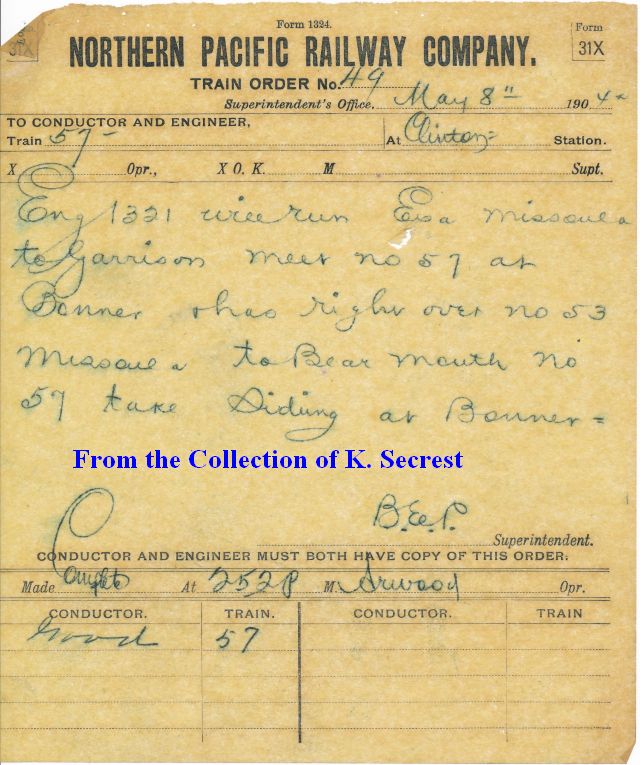 Form 1324.
31X
Form
31X
NORTHERN PACIFIC RAILWAY COMPANY.
TRAIN ORDER No. 49
Superintendent's Office, May 8" 1904
TO CONDUCTOR AND ENGINEER,
Train 57- At Clinton= Station.
X Opr., X O. K. M Supt.
Eng 1321 will run Missoula
to Garrison meet no 57 at
Bonner & has right over no 53
Missoula to Bear mouth no
57 take Siding at Bonner=
From the Collection of K. Secrest
Superintendent.
CONDUCTOR AND ENGINEER MUST BOTH HAVE COPY OF THIS ORDER.
Made At 252P M Opr.
CONDUCTOR. TRAIN. CONDUCTOR. TRAIN
Good 57